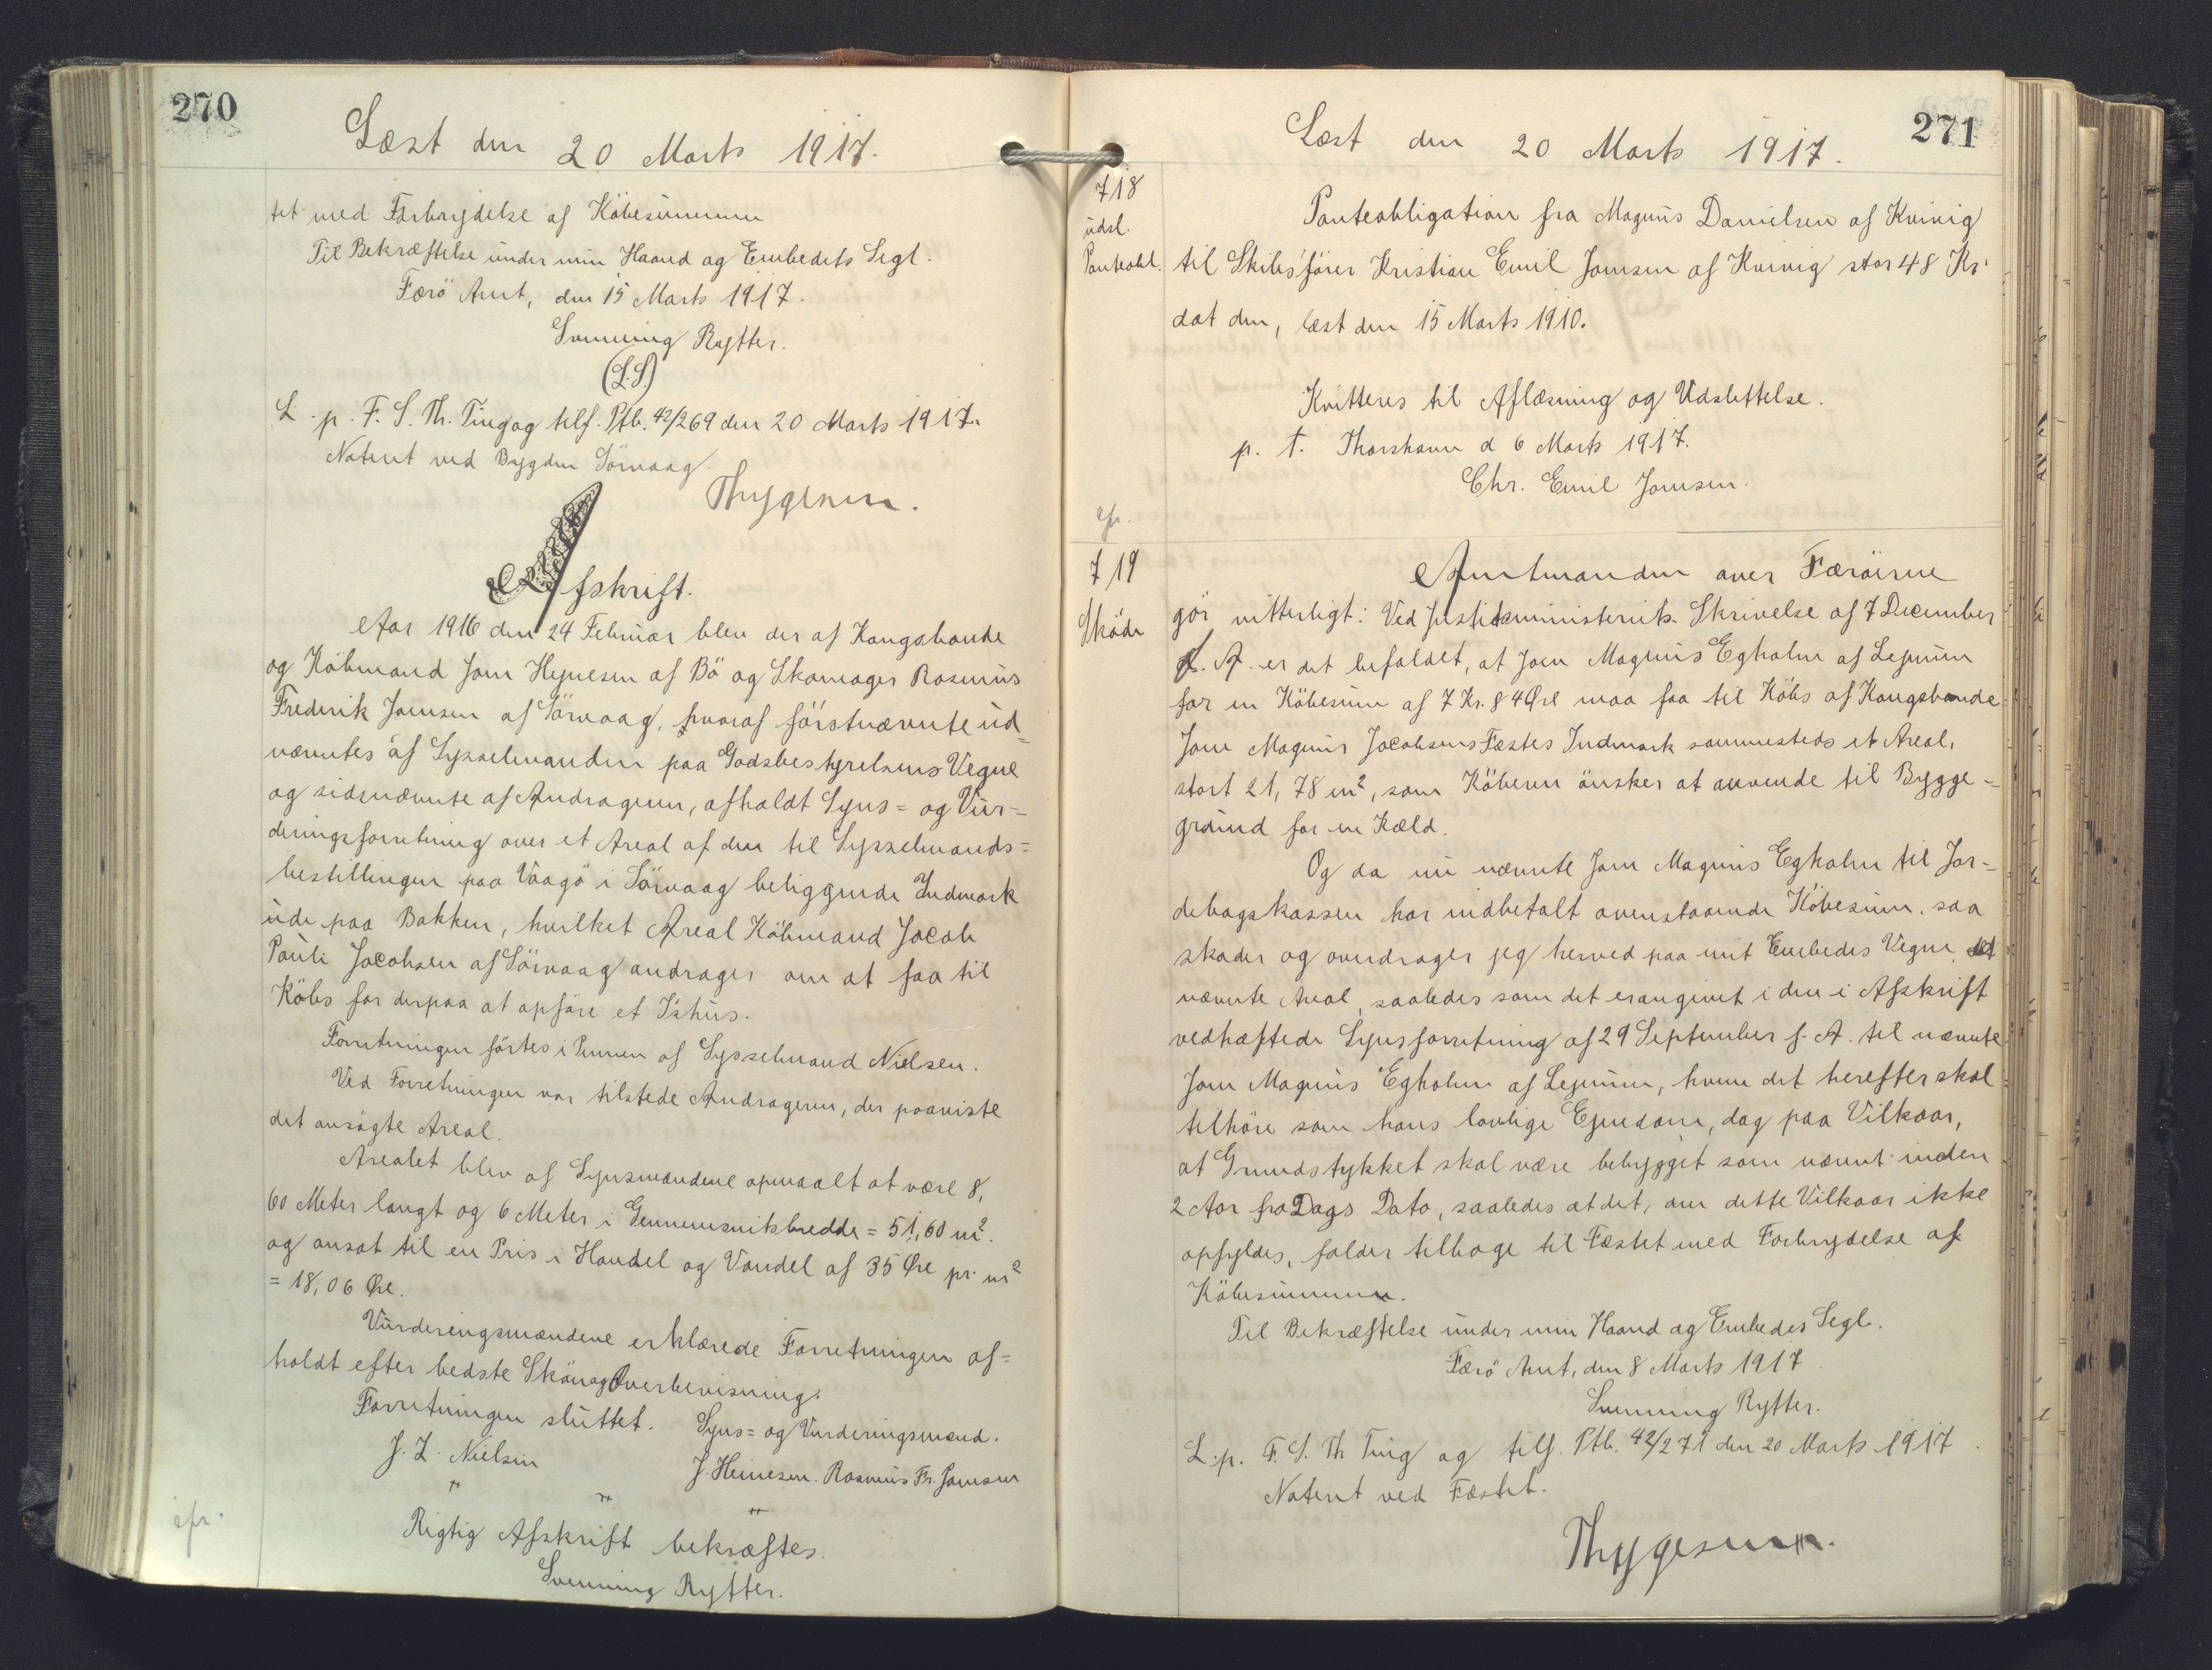 270
Læst den 20 Marts 1917.
tet med Forbrydelse af Köbesummen
Til Bekræftelse under min Haand og Embedets Segl.
Færö Amt, den 15 Marts 1917.
Svenning Rytter.
(L.S.)
L. p. F. S. Th. Ting og tilf. Ptb. 42/269 den 20 Marts 1917.
Noteret ved Bygden Sörvaag.
Thygesen.
Afskrift.
Aar 1916 den 24 Februar blev der af Kongsbonde
og Köbmand Joen Hejnesen af Bö og Skomager Rasmus
Frederik Joensen af Sörvaag, hvoraf förstnævnte ud=
nævntes af Sysselmanden paa Godsbestyrelsens Vegne
og sidsnævnte af Andrageren, afholdt Syns= og Vur=
deringsforretning over et Areal af den til Sysselmands=
bestillingen paa Vaagö i Sörvaag beliggende Indmark
ude paa Bakken, hvilket Areal Köbmand Jacob
Pauli Jacobsen af Sörvaag andrager om at faa til
Köbs for derpaa at opföre et Ishus.
Forretningen förtes i Pennen af Sysselmand Nielsen.
Ved Forretningen var tilstede Andrageren, der paaviste
det ansögte Areal.
Arealet blev af Synsmændene opmaalt at være 8,
60 Meter langt og 6 Meter i Gennemsnitsbredde = 51,60 m².
og ansat til en Pris i Handel og Vandel af 35 Øre pr. m²
= 18,06 Øre.
Vurderingsmændene erklærede Forretningen af=
holdt efter bedste Skön og Overbevisning.
Forretningen sluttet. Syns= og Vurderingsmænd.
J. Z. Nielsen J. Heinesen. Rasmus Fr. Joensen
" " "
Rigtig Afskrift bekræftes.
cfr.
Svenning Rytter.
271
Læst den 20 Marts 1917.
718
udsl.
Panteobl.
Panteobligation fra Magnus Danielsen af Kvivig
til Skibsförer Kristian Emil Joensen af Kvivig stor 48 Kr.
dat den, læst den 15 Marts 1910.
Kvitteres til Aflæsning og Udslettelse.
p. t. Thorshavn d 6 Marts 1917.
Chr. Emil Joensen.
cfr.
719
Sköde
Amtmanden over Færöerne
gör vitterligt: Ved Justitsministeriets Skrivelse af 7 December
f. A. er det befaldet, at Joen Magnus Egholm af Lejnum
for en Köbesum af 7 Kr. 84 Øre maa faa til Köbs af Kongsbonde
Joen Magnus Jacobsens Fæstes Indmark sammesteds et Areal,
stort 21,78 m², som Köberen önsker at anvende til Bygge=
grund for en Kæld.
Og da nu nævnte Joen Magnus Egholm til Jor=
debogskassen har indbetalt ovenstaaende Köbesum, saa
skøder og overdrager jeg herved paa mit Embedes Vegne det
nævnte Areal, saaledes som det er angivet i den i Afskrift
vedhæftede Synsforretning af 29 September f. A. til nævnte
Joen Magnus Egholm af Lejnum, hvem det herefter skal
tilhöre som hans lovlige Ejendom, dog paa Vilkaar,
at Grundstykket skal være bebygget som nævnt inden
2 Aar fra Dags Dato, saaledes at det, om dette Vilkaar ikke
opfyldes, falder tilbage til Fæstet med Forbrydelse af
Köbesummen.
Til Bekræftelse under min Haand og Embedes Segl.
Færö Amt, den 8 Marts 1917
Svenning Rytter.
L. p. F. S. Th Ting og tilf. Ptb. 42/271 den 20 Marts 1917.
Noteret ved Fæstet.
Thygesen.